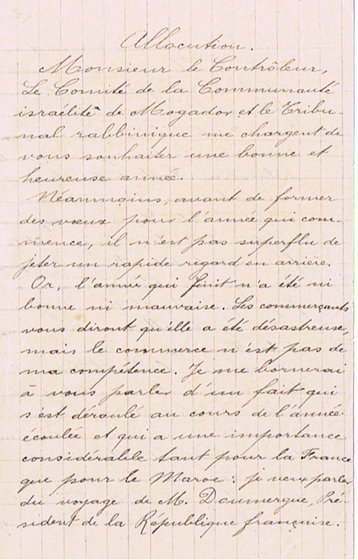 Allocution.
Monsieur le Contrôleur,
Le Comité de la Communauté
israélite de Mogador et le Tribu-
nal rabbinique me chargent de
vous souhaiter une bonne et
heureuse année.
Néanmoins, avant de former
des vœux pour l'année qui com-
mence, il n'est pas superflu de
jeter un rapide regard en arrière.
Or, l'année qui finit n'a été ni
bonne ni mauvaise. Les commerçants
vous diront qu'elle a été désastreuse,
mais le commerce n'est pas de
ma compétence. Je me bornerai
à vous parler d'un fait qui
s'est déroulé au cours de l'année
écoulée et qui a une importance
considérable tant pour la France
que pour le Maroc : je veux parler
du voyage de M. Doumergue, Pré-
sident de la République française.